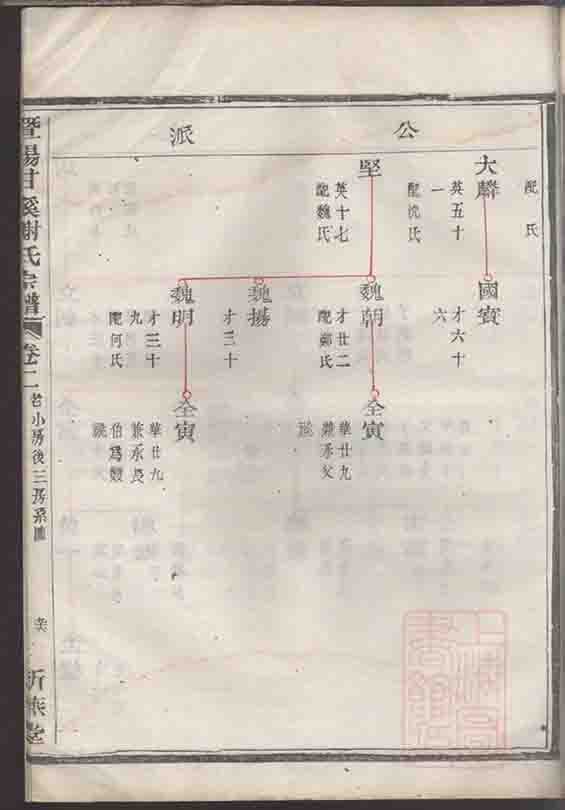 公派
配氏
大麟
英五十
一
配沈氏
堅
英十七
配魏氏
國賓
才六十
六
魏朝
才廿二
配鄭氏
魏揚
才三十
魏明
才三十
九
配何氏
全寅
華廿九
兼承父
全寅
華廿九
兼承長
伯爲嗣
暨陽甘溪謝氏宗譜
卷二
老小房後三房系圖